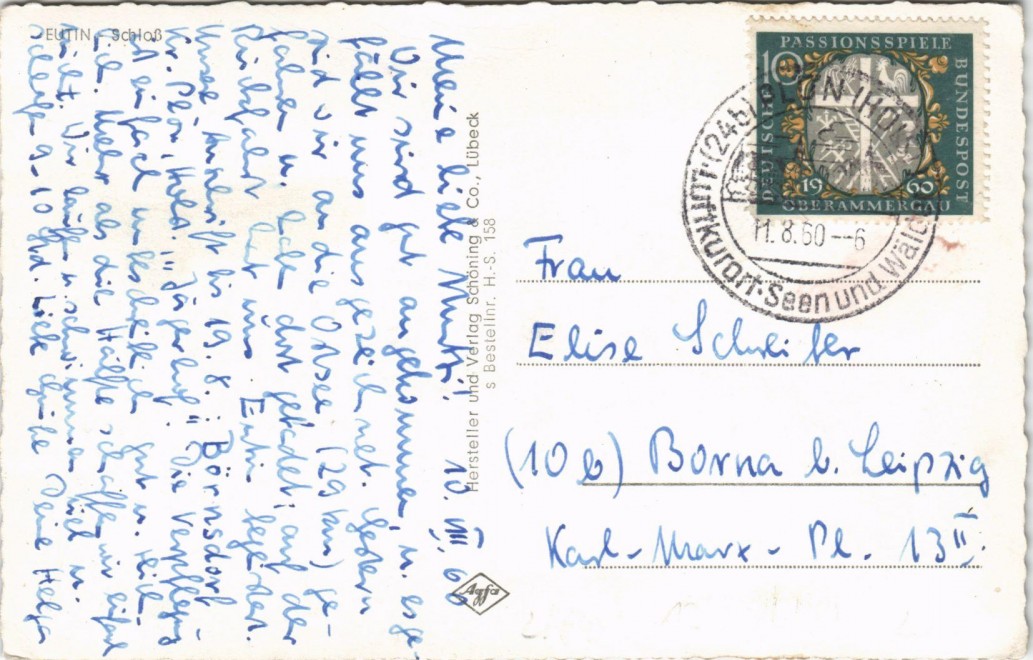 EUTIN, Schloß
Meine liebe Mutti! 10. VIII. 60
Wir sind gut angekommen, u. es ge-
fällt uns ausgezeichnet. Gestern
sind wir an die Ostsee (29 km) ge-
fahren u. haben dort gebadet; auf der
Rückfahrt hat uns Eutin begeistert.
Unsere Anschrift bis 19. 8.: Börnsdorf
Kr. Plön, Holst. "Jägerhof". Die Verpflegung
ist einfach unbeschreiblich gut u.
viel. Mehr als die Hälfte schaffen wir einfach
nicht. Wir laufen u. schwimmen viel u.
schlafen 9-10 Std. Liebe Grüße Deine Helga
Hersteller und Verlag Schöning & Co., Lübeck
s Bestellnr. H.-S. 158
Agfa
PASSIONSSPIELE
10
DEUTSCHE
BUNDESPOST
19 60
OBERAMMERGAU
(24b)
11.8.60--6
Luftkurort·Seen und Wälder
Frau
Elise
(10b) Borna b. Leipzig
Karl-Marx-Pl. 13 II